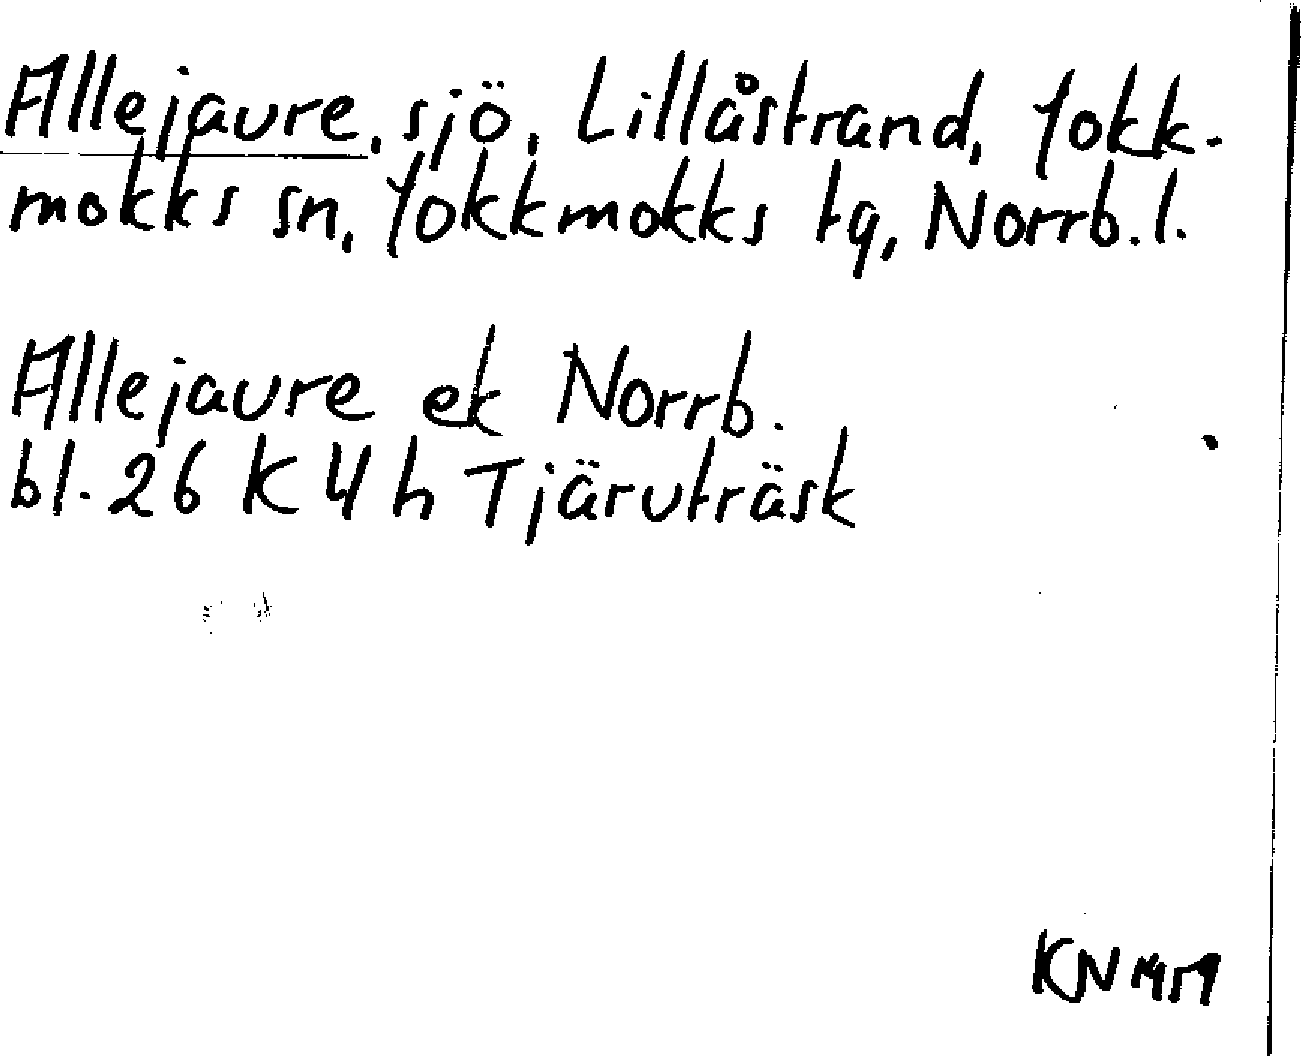 Allejaure, sjö, Lillåstrand, Jokk-
mokks sn, Jokkmokks tg, Norrb. l.
Allejaure ek Norrb.
bl. 26 K 4 h Tjäruträsk